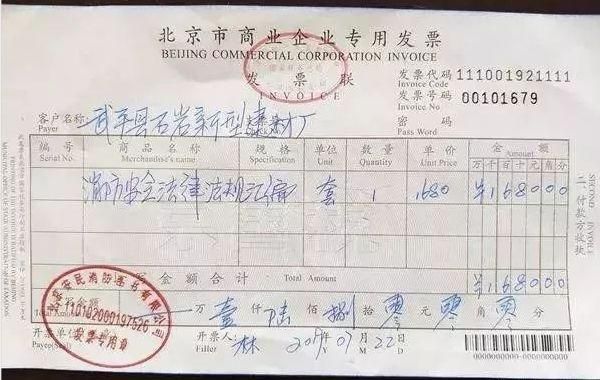 北京市商业企业专用发票
BEIJING COMMERCIAL CORPORATION INVOICE
发票联
INVOICE
发票代码 111001921111
Invoice Code
发票号码 00101679
Invoice No
客户名称: 武平县石岩新型建材厂
Payer
密 码
Pass Word
编号 商品名称 规格 单位 数量 单价 金额
Serial No. Merchandise's name Specification Unit Quantity Unit Price 万 千 百 十 元 角 分
消防安全法律法规汇编 套 1 1680 ¥168000
合计 Total Amount ¥168000
万 壹 仟 陆 佰 捌 拾 零 元 零 角 零 分
开票单位 开票人: 林 2019 Y 07 M 22 D
Payee(Seal) Filler
发票专用章
110102000197526
二·付款方收执
SECOND INVOICE
0000000000-00000000